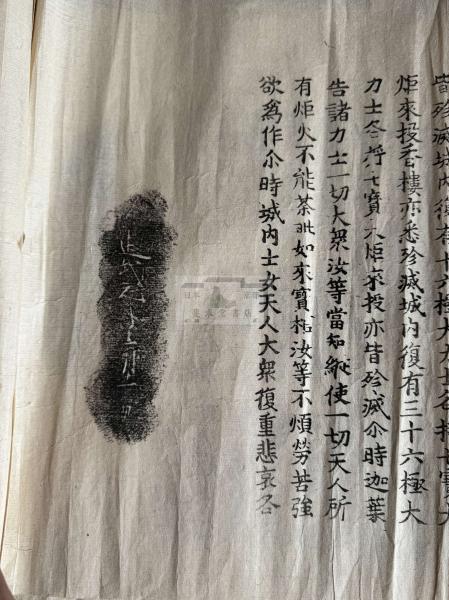 皆殄滅城內復有十六極大力士各持七寶大
炬來投香樓亦悉殄滅城內復有三十六極大
力士各持七寶大炬來投亦皆殄滅尒時迦葉
告諸力士一切大衆汝等當知縱使一切天人所
有炬火不能荼毗如來寶棺汝等不煩勞苦強
欲爲作尒時城內士女天人大衆復重悲哀各